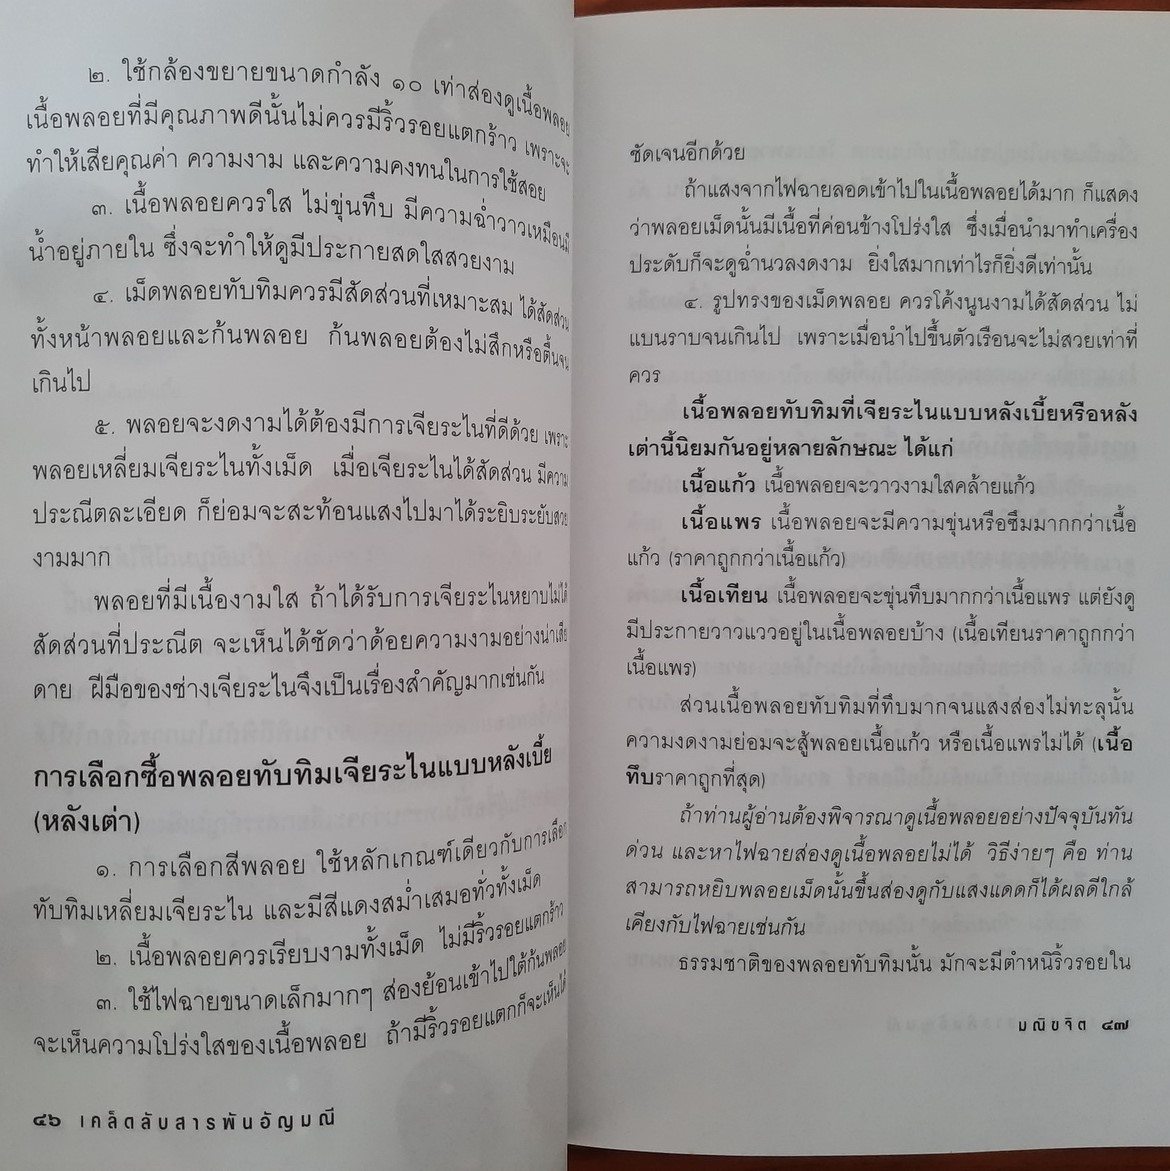 ๒. ใช้กล้องขยายขนาดกำลัง ๑๐ เท่าส่องดูเนื้อพลอย
เนื้อพลอยที่มีคุณภาพดีนั้นไม่ควรมีริ้วรอยแตกร้าว เพราะจะ
ทำให้เสียคุณค่า ความงาม และความคงทนในการใช้สอย
๓. เนื้อพลอยควรใส ไม่ขุ่นทึบ มีความฉ่ำวาวเหมือนมี
น้ำอยู่ภายใน ซึ่งจะทำให้ดูมีประกายสดใสสวยงาม
๔. เม็ดพลอยทับทิมควรมีสัดส่วนที่เหมาะสม ได้สัดส่วน
ทั้งหน้าพลอยและก้นพลอย ก้นพลอยต้องไม่ลึกหรือตื้นจน
เกินไป
๕. พลอยจะงดงามได้ต้องมีการเจียระไนที่ดีด้วย เพราะ
พลอยเหลี่ยมเจียระไนทั้งเม็ด เมื่อเจียระไนได้สัดส่วน มีความ
ประณีตละเอียด ก็ย่อมจะสะท้อนแสงไปมาได้ระยิบระยับสวย
งามมาก
พลอยที่มีเนื้องามใส ถ้าได้รับการเจียระไนหยาบไม่ได้
สัดส่วนที่ประณีต จะเห็นได้ชัดว่าด้อยความงามอย่างน่าเสีย
ดาย ฝีมือของช่างเจียระไนจึงเป็นเรื่องสำคัญมากเช่นกัน
การเลือกซื้อพลอยทับทิมเจียระไนแบบหลังเบี้ย
(หลังเต่า)
๑. การเลือกสีพลอย ใช้หลักเกณฑ์เดียวกับการเลือก
ทับทิมเหลี่ยมเจียระไน และมีสีแดงสม่ำเสมอทั่วทั้งเม็ด
๒. เนื้อพลอยควรเรียบงามทั้งเม็ด ไม่มีริ้วรอยแตกร้าว
๓. ใช้ไฟฉายขนาดเล็กมากๆ ส่องย้อนเข้าไปใต้ก้นพลอย
จะเห็นความโปร่งใสของเนื้อพลอย ถ้ามีริ้วรอยแตกก็จะเห็นได้
๔๖ เคล็ดลับสารพันอัญมณี
ชัดเจนอีกด้วย
ถ้าแสงจากไฟฉายลอดเข้าไปในเนื้อพลอยได้มาก ก็แสดง
ว่าพลอยเม็ดนั้นมีเนื้อที่ค่อนข้างโปร่งใส ซึ่งเมื่อนำมาทำเครื่อง
ประดับก็จะดูฉ่ำนวลงดงาม ยิ่งใสมากเท่าไรก็ยิ่งดีเท่านั้น
๔. รูปทรงของเม็ดพลอย ควรโค้งนูนงามได้สัดส่วน ไม่
แบนราบจนเกินไป เพราะเมื่อนำไปขึ้นตัวเรือนจะไม่สวยเท่าที่
ควร
เนื้อพลอยทับทิมที่เจียระไนแบบหลังเบี้ยหรือหลัง
เต่านี้นิยมกันอยู่หลายลักษณะ ได้แก่
เนื้อแก้ว เนื้อพลอยจะวาวงามใสคล้ายแก้ว
เนื้อแพร เนื้อพลอยจะมีความขุ่นหรือซึมมากกว่าเนื้อ
แก้ว (ราคาถูกกว่าเนื้อแก้ว)
เนื้อเทียน เนื้อพลอยจะขุ่นทึบมากกว่าเนื้อแพร แต่ยังดู
มีประกายวาวแววอยู่ในเนื้อพลอยบ้าง (เนื้อเทียนราคาถูกกว่า
เนื้อแพร)
ส่วนเนื้อพลอยทับทิมที่ทึบมากจนแสงส่องไม่ทะลุนั้น
ความงดงามย่อมจะสู้พลอยเนื้อแก้ว หรือเนื้อแพรไม่ได้ (เนื้อ
ทึบราคาถูกที่สุด)
ถ้าท่านผู้อ่านต้องพิจารณาดูเนื้อพลอยอย่างปัจจุบันทัน
ด่วน และหาไฟฉายส่องดูเนื้อพลอยไม่ได้ วิธีง่ายๆ คือ ท่าน
สามารถหยิบพลอยเม็ดนั้นขึ้นส่องดูกับแสงแดดก็ได้ผลดีใกล้
เคียงกับไฟฉายเช่นกัน
ธรรมชาติของพลอยทับทิมนั้น มักจะมีตำหนิริ้วรอยใน
มณีขจิต ๔๗